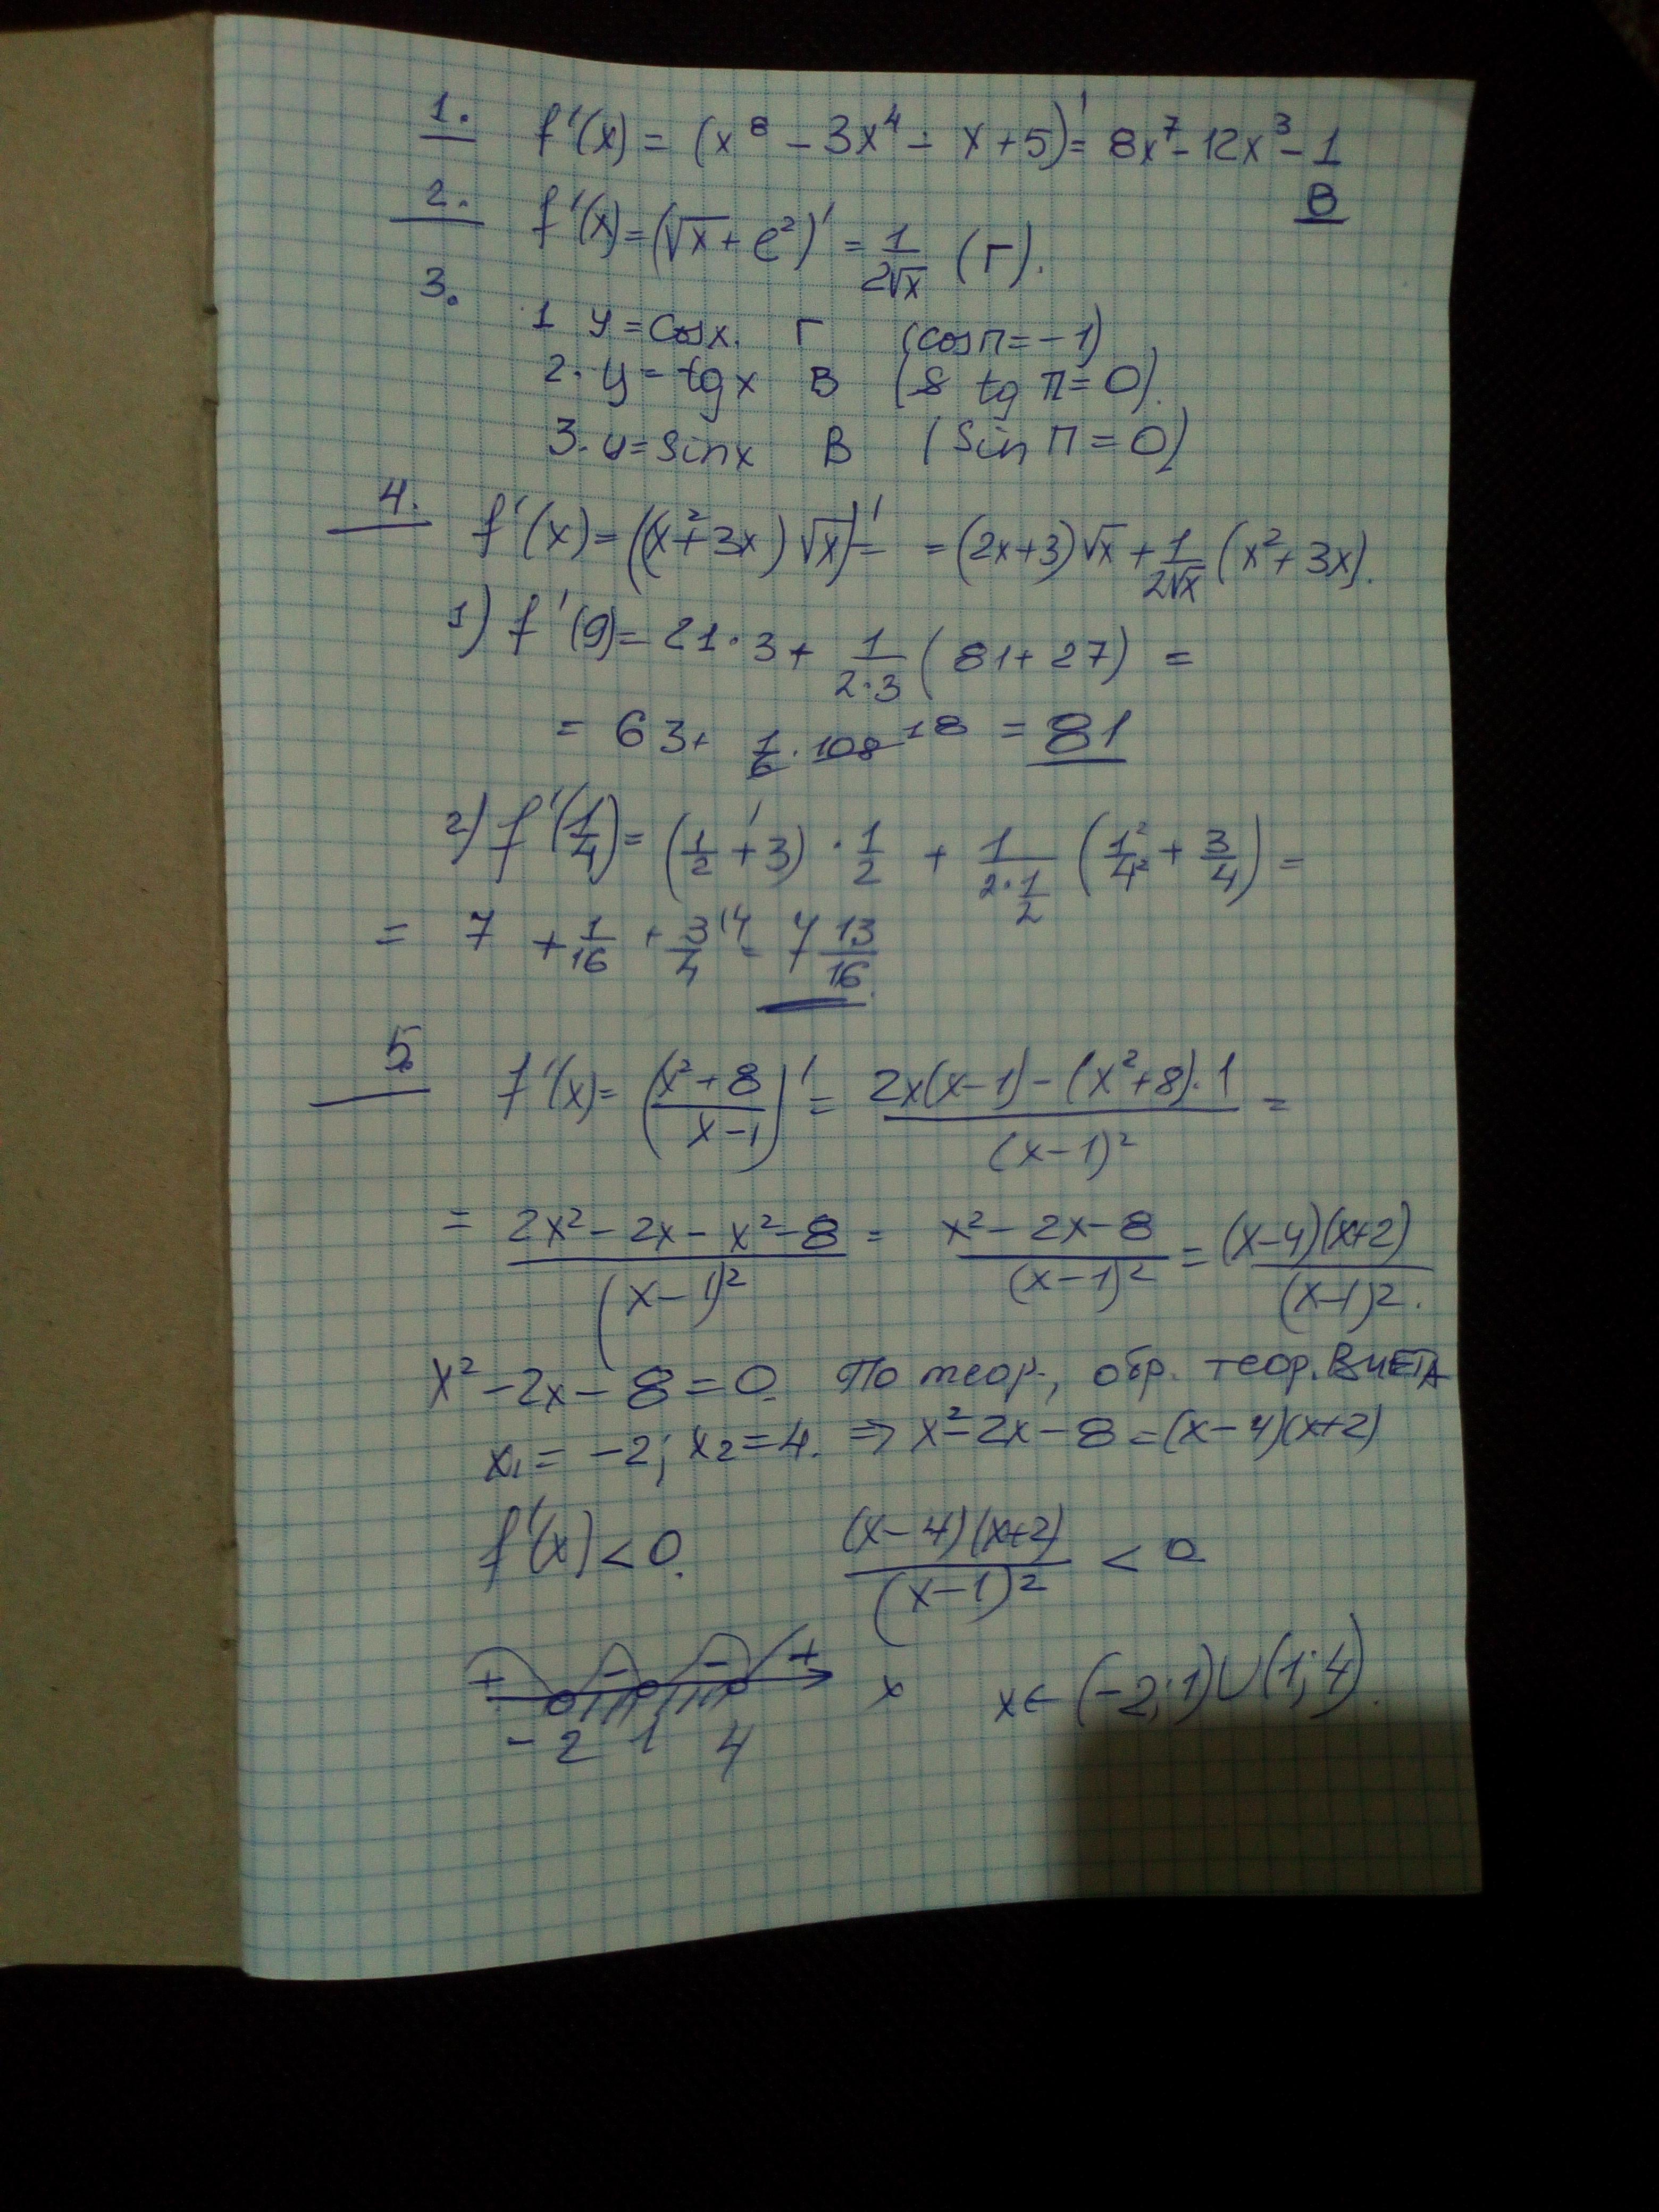 1. f'(x) = (x⁸ - 3x⁴ - x + 5)' = 8x⁷ - 12x³ - 1
В
2. f'(x) = (√x + e²)' = 1/(2√x) (Г).
3.
1 y = cosx. Г (cosπ = -1)
2. y = tgx В (tg π = 0).
3. y = sinx В (sin π = 0)
4. f'(x) = ((x² + 3x)√x)' = = (2x+3)√x + 1/(2√x) (x² + 3x).
1) f'(9) = 21·3 + 1/(2·3) (81 + 27) =
= 63 + 1/6 · 108 18 = 81
2) f'(1/4) = (1/2 + 3)' · 1/2 + 1/(2·1/2) (1²/4² + 3/4) =
= 7 + 1/16 + 3/4 ⁽⁴ = 7 13/16.
5. f'(x) = ((x² + 8)/(x - 1))' = (2x(x-1) - (x²+8)·1)/(x-1)² =
= (2x² - 2x - x² - 8)/(x-1)² = (x² - 2x - 8)/(x-1)² = (x-4)(x+2)/(x-1)².
x² - 2x - 8 = 0. По теор., обр. теор. ВИЕТА
x₁ = -2; x₂ = 4. ⇒ x² - 2x - 8 = (x-4)(x+2)
f'(x) < 0. (x-4)(x+2)/(x-1)² < 0
+ - - + x x ∈ (-2; 1)∪(1; 4).
-2 1 4